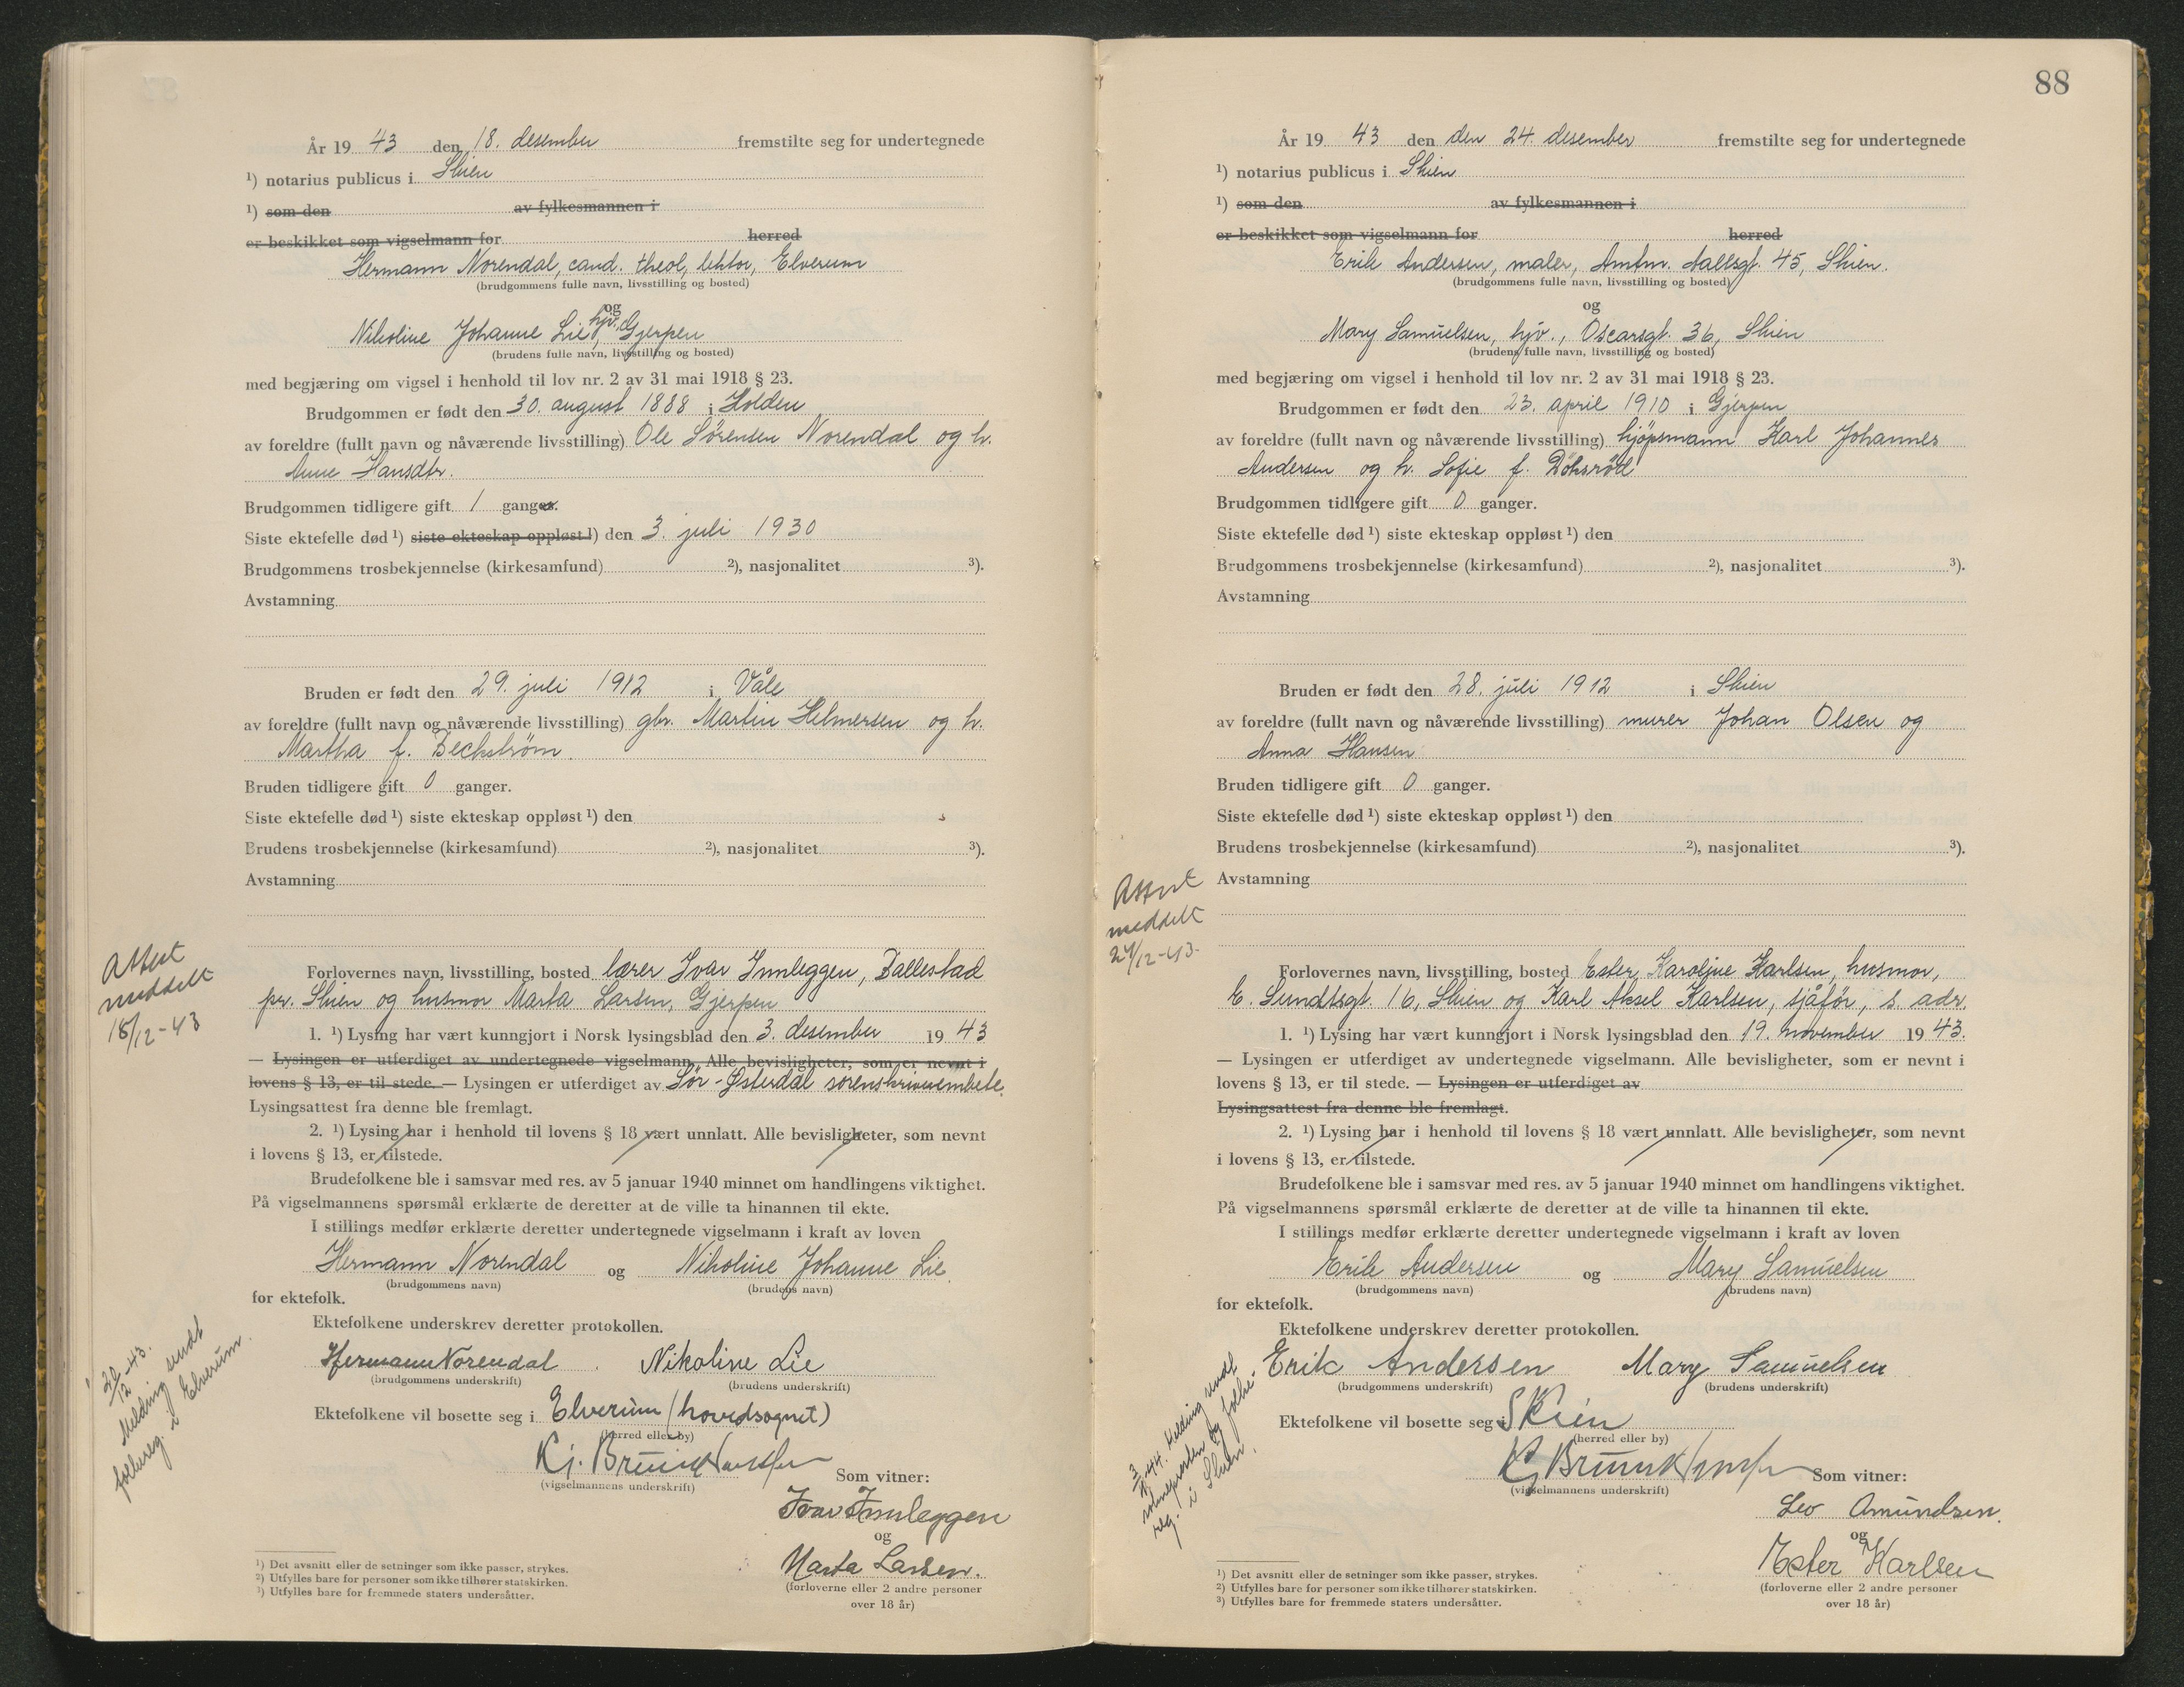 År 19 43 den 18. desember fremstilte seg for undertegnede
¹) notarius publicus i Skien
¹) som den av fylkesmannen i
er beskikket som vigselmann for herred
Hermann Norendal, cand. theol, lektor, Elverum
(brudgommens fulle navn, livsstilling og bosted)
og
Nikoline Johanne Lie, hjv. Gjerpen
(brudens fulle navn, livsstilling og bosted)
med begjæring om vigsel i henhold til lov nr. 2 av 31 mai 1918 § 23.
Brudgommen er født den 30. august 1888 i Holden
av foreldre (fullt navn og nåværende livsstilling) Ole Sørensen Norendal og h.
Anne Hansdtr.
Brudgommen tidligere gift 1 ganger.
Siste ektefelle død ¹) siste ekteskap oppløst ¹) den 3. juli 1930
Brudgommens trosbekjennelse (kirkesamfund) ²), nasjonalitet ³).
Avstamning
Bruden er født den 29. juli 1912 i Våle
av foreldre (fullt navn og nåværende livsstilling) gbr. Martin Helmersen og h.
Martha f. Bechstrøm.
Bruden tidligere gift 0 ganger.
Siste ektefelle død ¹) siste ekteskap oppløst ¹) den
Brudens trosbekjennelse (kirkesamfund) ²), nasjonalitet ³).
Avstamning
Attest
meddelt
18/12-43
Forlovernes navn, livsstilling, bosted lærer Ivar Innleggen, Ballestad
pr. Skien og husmor Marta Larsen, Gjerpen
1. ¹) Lysing har vært kunngjort i Norsk lysingsblad den 3. desember 19 43
— Lysingen er utferdiget av undertegnede vigselmann. Alle bevisligheter, som er nevnt i
lovens § 13, er til stede. — Lysingen er utferdiget av Sør-Østerdal sorenskriverembete.
Lysingsattest fra denne ble fremlagt.
2. ¹) Lysing har i henhold til lovens § 18 vært unnlatt. Alle bevisligheter, som nevnt
i lovens § 13, er tilstede.
Brudefolkene ble i samsvar med res. av 5 januar 1940 minnet om handlingens viktighet.
På vigselmannens spørsmål erklærte de deretter at de ville ta hinannen til ekte.
I stillings medfør erklærte deretter undertegnede vigselmann i kraft av loven
Hermann Norendal og Nikoline Johanne Lie
(brudgommens navn) (brudens navn)
for ektefolk.
Ektefolkene underskrev deretter protokollen.
Hermann Norendal . Nikoline Lie
(brudgommens underskrift) (brudens underskrift)
20/12-43.
Melding sendt
folkereg. i Elverum.
Ektefolkene vil bosette seg i Elverum (hovedsognet)
(herred eller by)
Kj.
(vigselmannens underskrift)
Som vitner:
Ivar Innleggen
og
Marta Larsen.
(forloverne eller 2 andre personer
over 18 år)
¹) Det avsnitt eller de setninger som ikke passer, strykes.
²) Utfylles bare for personer som ikke tilhører statskirken.
³) Utfylles bare for fremmede staters undersåtter.
88
År 19 43 den den 24. desember fremstilte seg for undertegnede
¹) notarius publicus i Skien
¹) som den av fylkesmannen i
er beskikket som vigselmann for herred
Erik Andersen, maler, Amtm. Aallsgt. 45, Skien.
(brudgommens fulle navn, livsstilling og bosted)
og
Mary Samuelsen, hjv., Oscarsgt. 36, Skien
(brudens fulle navn, livsstilling og bosted)
med begjæring om vigsel i henhold til lov nr. 2 av 31 mai 1918 § 23.
Brudgommen er født den 23. april 1910 i Gjerpen
av foreldre (fullt navn og nåværende livsstilling) kjöpsmann Karl Johannes
Andersen og h. Sofie f.
Brudgommen tidligere gift 0 ganger.
Siste ektefelle død ¹) siste ekteskap oppløst ¹) den
Brudgommens trosbekjennelse (kirkesamfund) ²), nasjonalitet ³).
Avstamning
Bruden er født den 28. juli 1912 i Skien
av foreldre (fullt navn og nåværende livsstilling) murer Johan Olsen og
Anna Hansen
Bruden tidligere gift 0 ganger.
Siste ektefelle død ¹) siste ekteskap oppløst ¹) den
Brudens trosbekjennelse (kirkesamfund) ²), nasjonalitet ³).
Avstamning
Attest
meddelt
24/12-43.
Forlovernes navn, livsstilling, bosted Ester Karoline Karlsen, husmor,
E. Sundtsgt. 16, Skien og Karl Aksel Karlsen, sjåfør, s. adr.
1. ¹) Lysing har vært kunngjort i Norsk lysingsblad den 19. november 19 43.
— Lysingen er utferdiget av undertegnede vigselmann. Alle bevisligheter, som er nevnt i
lovens § 13, er til stede. — Lysingen er utferdiget av
Lysingsattest fra denne ble fremlagt.
2. ¹) Lysing har i henhold til lovens § 18 vært unnlatt. Alle bevisligheter, som nevnt
i lovens § 13, er tilstede.
Brudefolkene ble i samsvar med res. av 5 januar 1940 minnet om handlingens viktighet.
På vigselmannens spørsmål erklærte de deretter at de ville ta hinannen til ekte.
I stillings medfør erklærte deretter undertegnede vigselmann i kraft av loven
Erik Andersen og Mary Samuelsen
(brudgommens navn) (brudens navn)
for ektefolk.
Ektefolkene underskrev deretter protokollen.
Erik Andersen Mary Samuelsen
(brudgommens underskrift) (brudens underskrift)
3/1-44. Melding sendt
soknepresten og folke-
reg. i Skien.
Ektefolkene vil bosette seg i Skien
(herred eller by)
Kj
(vigselmannens underskrift)
Som vitner:
Leo Amundsen.
og
Ester Karlsen
(forloverne eller 2 andre personer
over 18 år)
¹) Det avsnitt eller de setninger som ikke passer, strykes.
²) Utfylles bare for personer som ikke tilhører statskirken.
³) Utfylles bare for fremmede staters undersåtter.